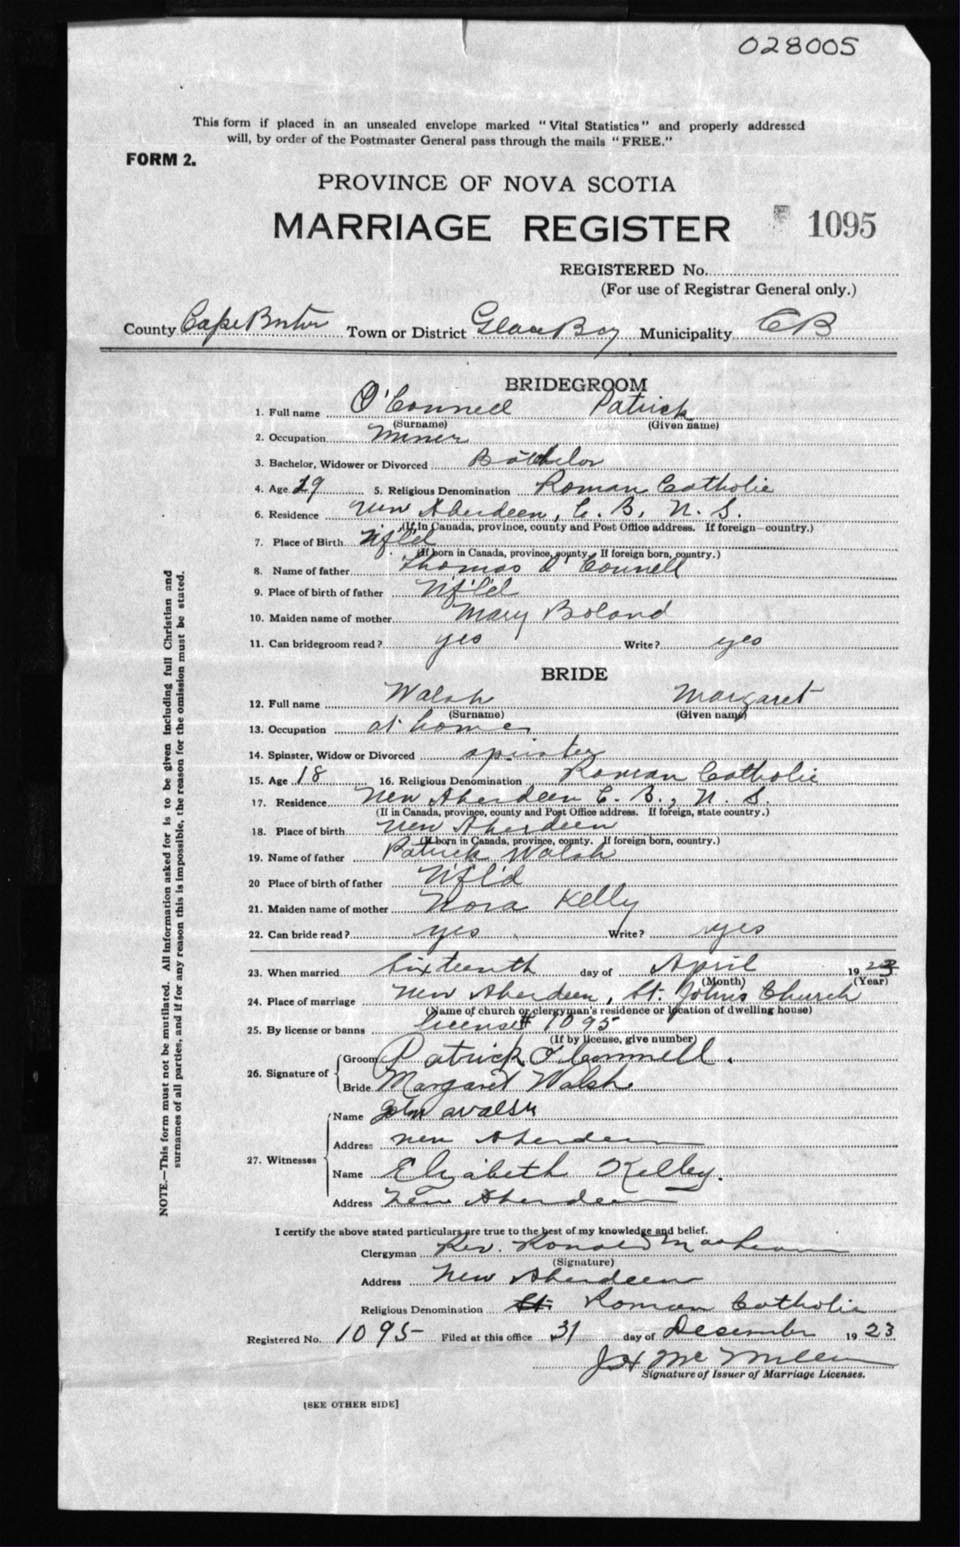 028005
This form if placed in an unsealed envelope marked "Vital Statistics" and properly addressed
will, by order of the Postmaster General pass through the mails "FREE."
FORM 2.
PROVINCE OF NOVA SCOTIA
MARRIAGE REGISTER 1095
REGISTERED No.
(For use of Registrar General only.)
County Cape Breton Town or District Glace Bay Municipality CB
BRIDEGROOM
1. Full name O'Connell Patrick
(Surname) (Given name)
2. Occupation Miner
3. Bachelor, Widower or Divorced Bachelor
4. Age 29 5. Religious Denomination Roman Catholic
6. Residence New Aberdeen, C. B. N. S.
(If in Canada, province, county and Post Office address. If foreign—country.)
7. Place of Birth Nf'l'd
(If born in Canada, province, county. If foreign born, country.)
8. Name of father Thomas O'Connell
9. Place of birth of father Nf'l'd
10. Maiden name of mother Mary Boland
11. Can bridegroom read? yes Write? yes
BRIDE
12. Full name Walsh Margaret
(Surname) (Given name)
13. Occupation at home
14. Spinster, Widow or Divorced spinster
15. Age 18 16. Religious Denomination Roman Catholic
17. Residence New Aberdeen C. B., N. S.
(If in Canada, province, county and Post Office address. If foreign, state country.)
18. Place of birth New Aberdeen
(If born in Canada, province, county. If foreign born, country.)
19. Name of father Patrick Walsh
20 Place of birth of father N'fl'd
21. Maiden name of mother Nora Kelly
22. Can bride read? yes Write? yes
23. When married Sixteenth day of April 1923
(Month) (Year)
24. Place of marriage New Aberdeen, St. Johns Church
(Name of church or clergyman's residence or location of dwelling house)
25. By license or banns License # 1095
(If by license, give number)
26. Signature of Groom Patrick O'Connell.
Bride Margaret Walsh
27. Witnesses Name John Walsh
Address New Aberdeen
Name Elizabeth Kelley.
Address New Aberdeen
I certify the above stated particulars are true to the best of my knowledge and belief.
Clergyman Rev. Ronald
(Signature)
Address New Aberdeen
Religious Denomination St. Roman Catholic
Registered No. 1095 Filed at this office 31 day of Desember 1923
J H McMillan
Signature of Issuer of Marriage Licenses.
[SEE OTHER SIDE]
NOTE.—This form must not be mutilated. All information asked for is to be given including full Christian and
surnames of all parties, and if for any reason this is impossible, the reason for the omission must be stated.